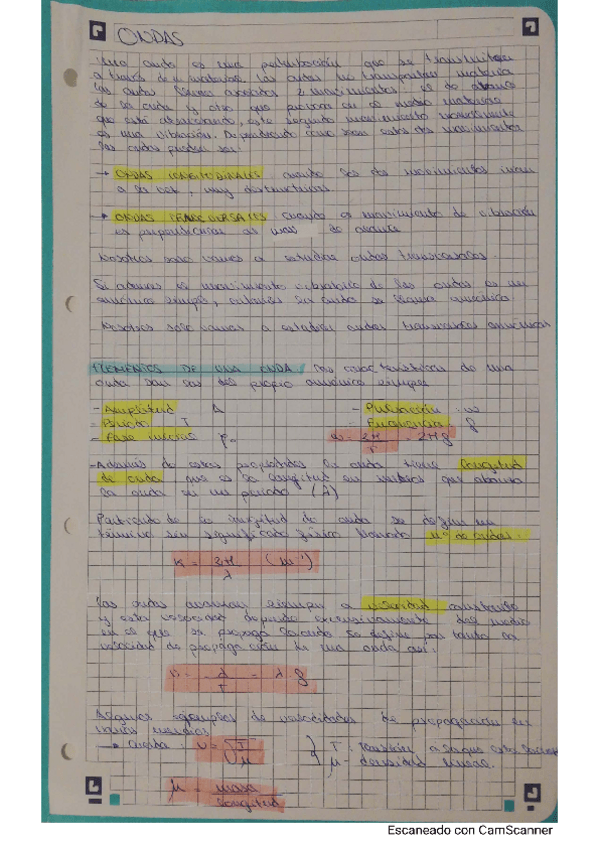 ONDAS
Una onda es una perturbación que se transmite
a través de Las ondas no transportan materia
Las ondas llevan asociadas 2 movimientos, el de avance
de la onda y otro que provoca en el medio material
que está atravesando, este segundo movimiento
es una vibración. Dependiendo como sean estos dos movimientos
las ondas pueden ser:
→ ONDAS LONGITUDINALES cuando los dos movimientos
a la vez, muy destructivas
→ ONDAS TRANSVERSALES cuando el movimiento de vibración
es perpendicular al de avance
Nosotros solo vamos a estudiar ondas transversales.
Si además el movimiento vibratorio de las ondas es un
armónico simple, entonces la onda se llama armónica
Nosotros solo vamos a estudiar ondas transversales armónicas
ELEMENTOS DE UNA ONDA Las características de una
onda son las del propio armónico simple
- Amplitud A
- Pulsación ω
- Período T
Frecuencia f
- Fase inicial φ₀
ω = 2π/T = 2πf
- Además de estas propiedades la onda tiene longitud
de onda que es la longitud en metros que avanza
la onda en un período (λ)
Partiendo de la longitud de onda se define un
término sin significado físico llamado nº de ondas.
K = 2π/λ (m⁻¹)
Las ondas avanzan siempre a velocidad constante
y esta velocidad depende exclusivamente del medio
en el que se propaga la onda Se define por tanto la
velocidad de propagación de una onda así:
v = λ/T = λ·f
Algunos ejemplos de velocidades de propagación en
varios medios
→ Cuerda: v = √T/μ } T - tensión a la que está
μ - densidad lineal.
μ = masa/longitud
Escaneado con CamScanner